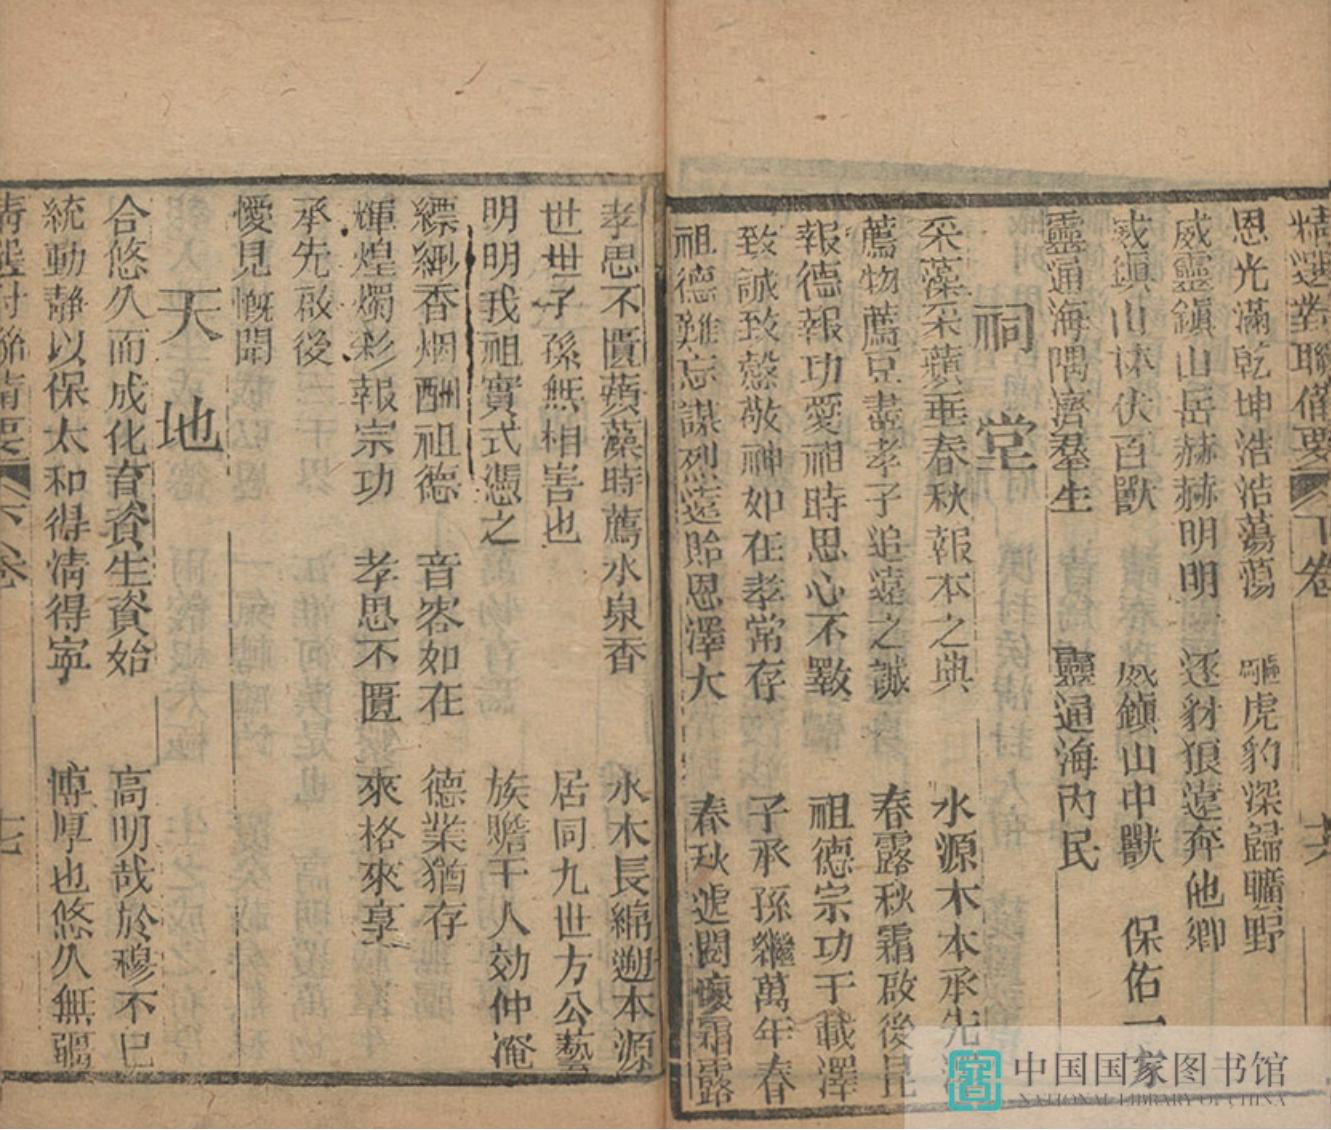 精選對聯備要 下卷 十六
恩光滿乾坤浩浩蕩蕩 驅虎豹深歸曠野
威靈鎮山岳赫赫明明 逐豺狼遠奔他鄉
威鎮山林伏百獸 威鎮山中獸 保佑一
靈通海隅濟羣生 靈通海內民
祠堂
采藻采蘋垂春秋報本之典 水源木本承先
薦物薦豆盡孝子追遠之誠 春露秋霜啟後昆
報德報功愛祖時思心不斁 祖德宗功千載澤
致誠致慤敬神如在孝常存 子承孫繼萬年春
祖德難忘謀烈遠貽恩澤大 春秋遞閱懷霜露
孝思不匱蘋藻時薦水泉香 水木長綿遡本源
世世子孫無相害也 居同九世方公藝
明明我祖實式憑之 族贍千人効仲淹
縹緲香烟酬祖德 音容如在 德業猶存
輝煌燭彩報宗功 孝思不匱 來格來享
承先啟後
僾見愾聞
天地
合悠久而成化育資生資始 高明哉於穆不已
統動靜以保太和得清得寧 博厚也悠久無疆
精選對聯備要 下卷 十七
中国国家图书馆
NATIONAL LIBRARY OF CHINA